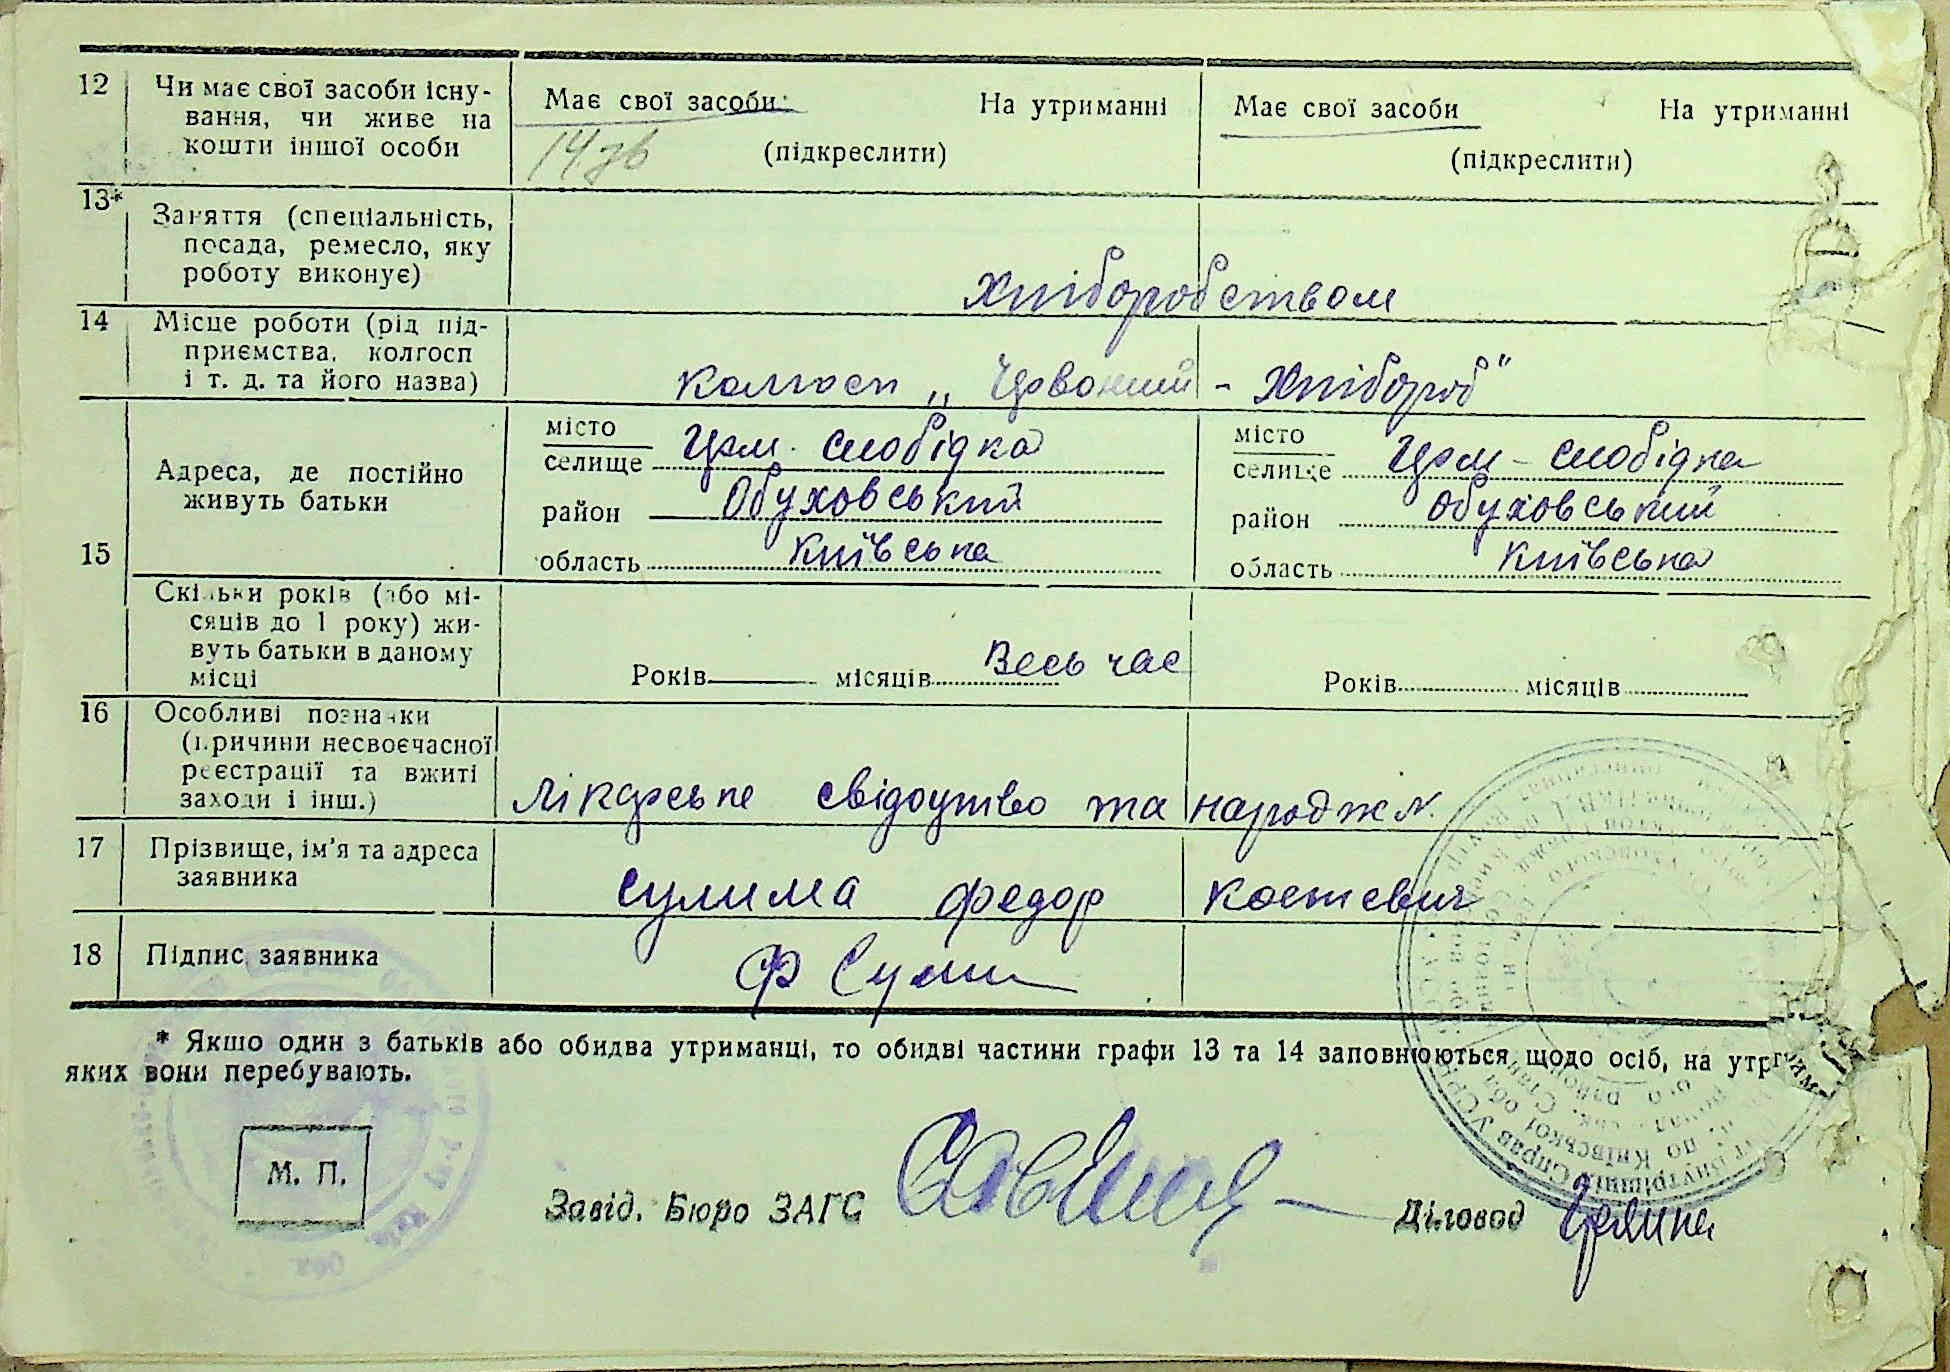 12 Чи має свої засоби існу-
вання, чи живе на
кошти іншої особи
Має свої засоби На утриманні
(підкреслити)
Має свої засоби На утриманні
(підкреслити)
13* Заняття (спеціальність,
посада, ремесло, яку
роботу виконує)
Хліборобством
14 Місце роботи (рід під-
приємства, колгосп
і т. д. та його назва)
колгосп „Червоний - Хлібороб"
15 Адреса, де постійно
живуть батьки
місто
селище Герм. слобідка
район Обуховський
область Київська
місто
селище Герм - слобідка
район Обуховський
область Київська
Скільки років (або мі-
сяців до 1 року) жи-
вуть батьки в даному
місці
Років місяців Весь час
Років місяців
16 Особливі позначки
(причини несвоєчасної
реєстрації та вжиті
заходи і інш.)
лікарське свідоцтво та народж.
17 Прізвище, ім'я та адреса
заявника
Сулима Федор Костевич
18 Підпис заявника
Ф Сулим
* Якшо один з батьків або обидва утриманці, то обидві частини графи 13 та 14 заповнюються щодо осіб, на утрим-
яких вони перебувають.
М. П.
Завід. Бюро ЗАГС
Діловод